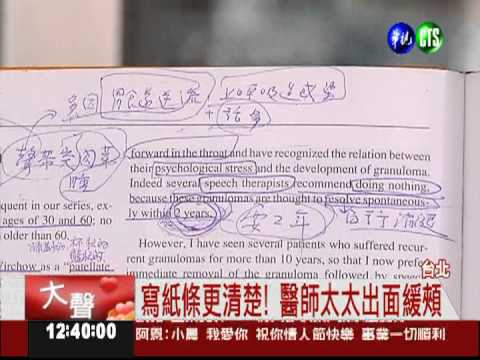 華視 CTS
多因 胃食道逆流 上呼吸道感染
+ 話多
聲帶突肉芽
腫
forward in the throat and have recognized the relation between
their psychological stress and the development of granuloma.
Indeed several speech therapists recommend doing nothing,
because these granulomas are thought to resolve spontaneous-
ly within 2 years. 要2年 自行消退
However, I have seen several patients who suffered recur-
rent granulomas for more than 10 years, so that I now prefer
immediate removal of the granuloma followed by speech
quent in our series, ex-
ages of 30 and 60; no
n older than 60.
杯狀的
盤狀的
Virchow as a “patellate
台北
大聲
寫紙條更清楚! 醫師太太出面緩頰
12:40:00
阿恩:小晨 我愛你 祝你情人節快樂 事業一切順利